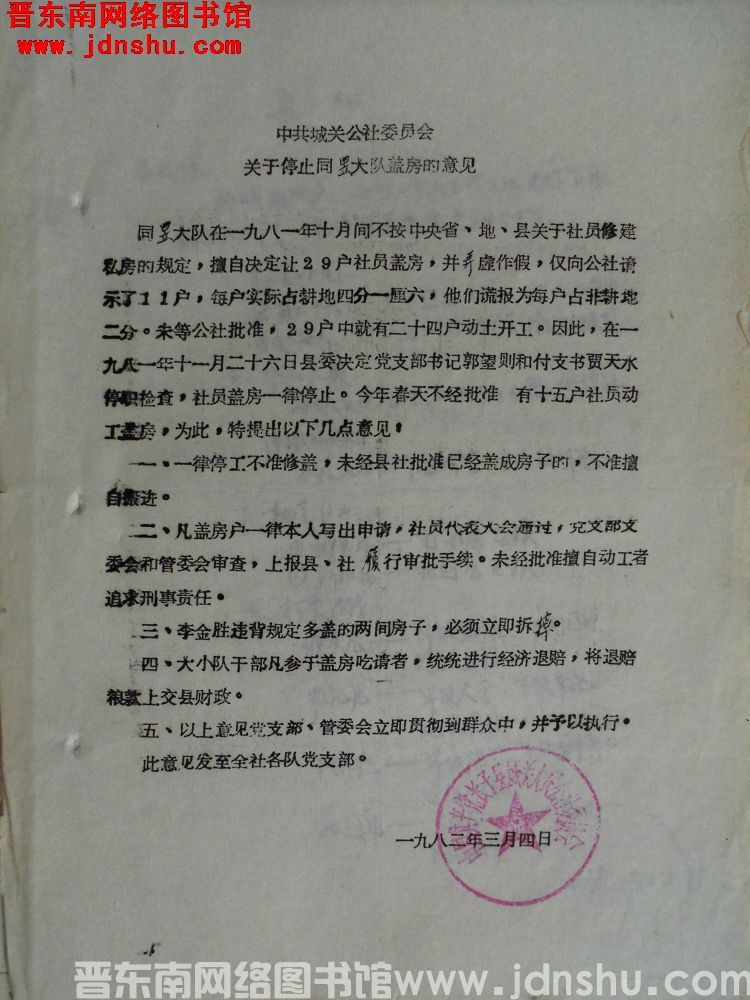 晋东南网络图书馆
www.jdnshu.com
中共城关公社委员会
关于停止同昱大队盖房的意见
同昱大队在一九八一年十月间不按中央省、地、县关于社员修建
私房的规定，擅自决定让29户社员盖房，并弄虚作假，仅向公社请
示了11户，每户实际占耕地四分一厘六，他们谎报为每户占非耕地
二分。未等公社批准，29户中就有二十四户动土开工。因此，在一
九八一年十一月二十六日县委决定党支部书记郭望则和付支书贾天水
停职检查，社员盖房一律停止。今年春天不经批准 有十五户社员动
工盖房，为此，特提出以下几点意见：
一、一律停工不准修盖，未经县社批准已经盖成房子的，不准擅
自搬进。
二、凡盖房户一律本人写出申请，社员代表大会通过，党支部支
委会和管委会审查，上报县、社履行审批手续。未经批准擅自动工者
追求刑事责任。
三、李金胜违背规定多盖的两间房子，必须立即拆掉。
四、大小队干部凡参于盖房吃请者，统统进行经济退赔，将退赔
粮款上交县财政。
五、以上意见党支部、管委会立即贯彻到群众中，并予以执行。
此意见发至全社各队党支部。
一九八二年三月四日
晋东南网络图书馆www.jdnshu.com